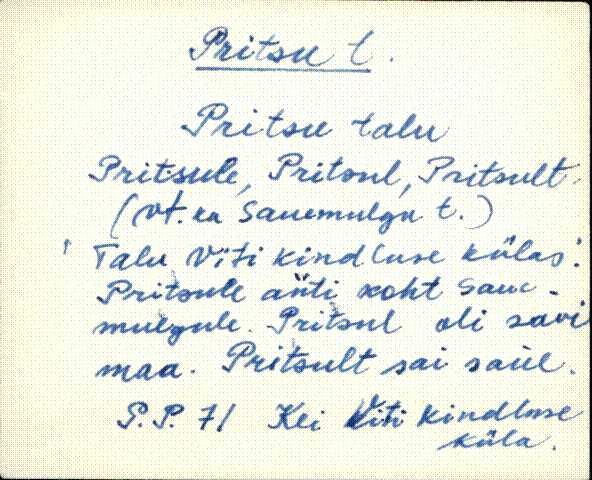 Pritsu t.
Pritsu talu
Pritsule, Pritsul, Pritsult.
(vt. ka Sauemulgu t.)
' Talu Viti kindluse külas.'
Pritsule anti koht Saue-
mulgule. Pritsul oli savi
maa. Pritsult sai
P.P. 71 Kei Viti kindluse
küla.